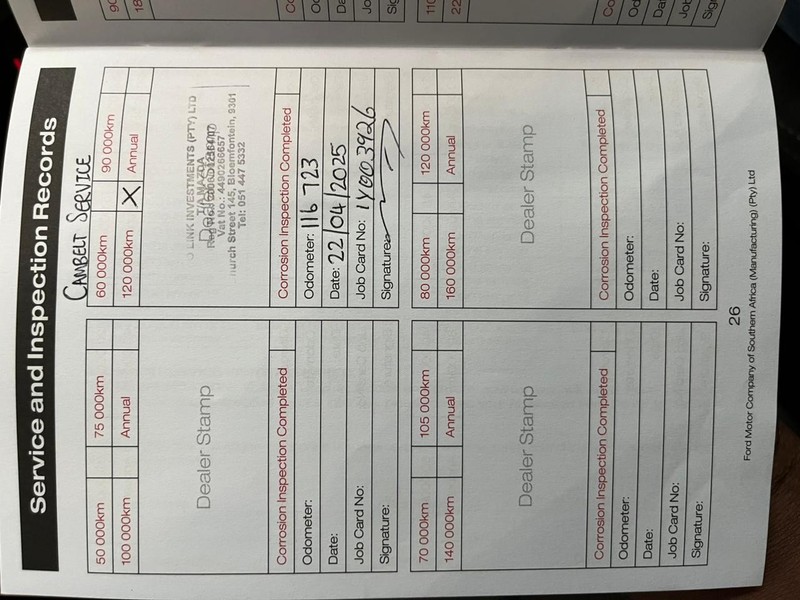 Service and Inspection Records
CAMBELT SERVICE
50 000km 75 000km
100 000km Annual
Dealer Stamp
Corrosion Inspection Completed
Odometer:
Date:
Job Card No:
Signature:
60 000km 90 000km
120 000km X Annual
LINK INVESTMENTS (PTY) LTD
T/A MAZDA
Dealer Stamp
Vat No.: 4490266657
hurch Street 145, Bloemfontein, 9301
Tel: 051 447 5332
Corrosion Inspection Completed
Odometer: 116 723
Date: 22/04/2025
Job Card No: 1Y003926
Signature:
70 000km 105 000km
140 000km Annual
Dealer Stamp
Corrosion Inspection Completed
Odometer:
Date:
Job Card No:
Signature:
80 000km 120 000km
160 000km Annual
Dealer Stamp
Corrosion Inspection Completed
Odometer:
Date:
Job Card No:
Signature:
26
Ford Motor Company of Southern Africa (Manufacturing) (Pty) Ltd